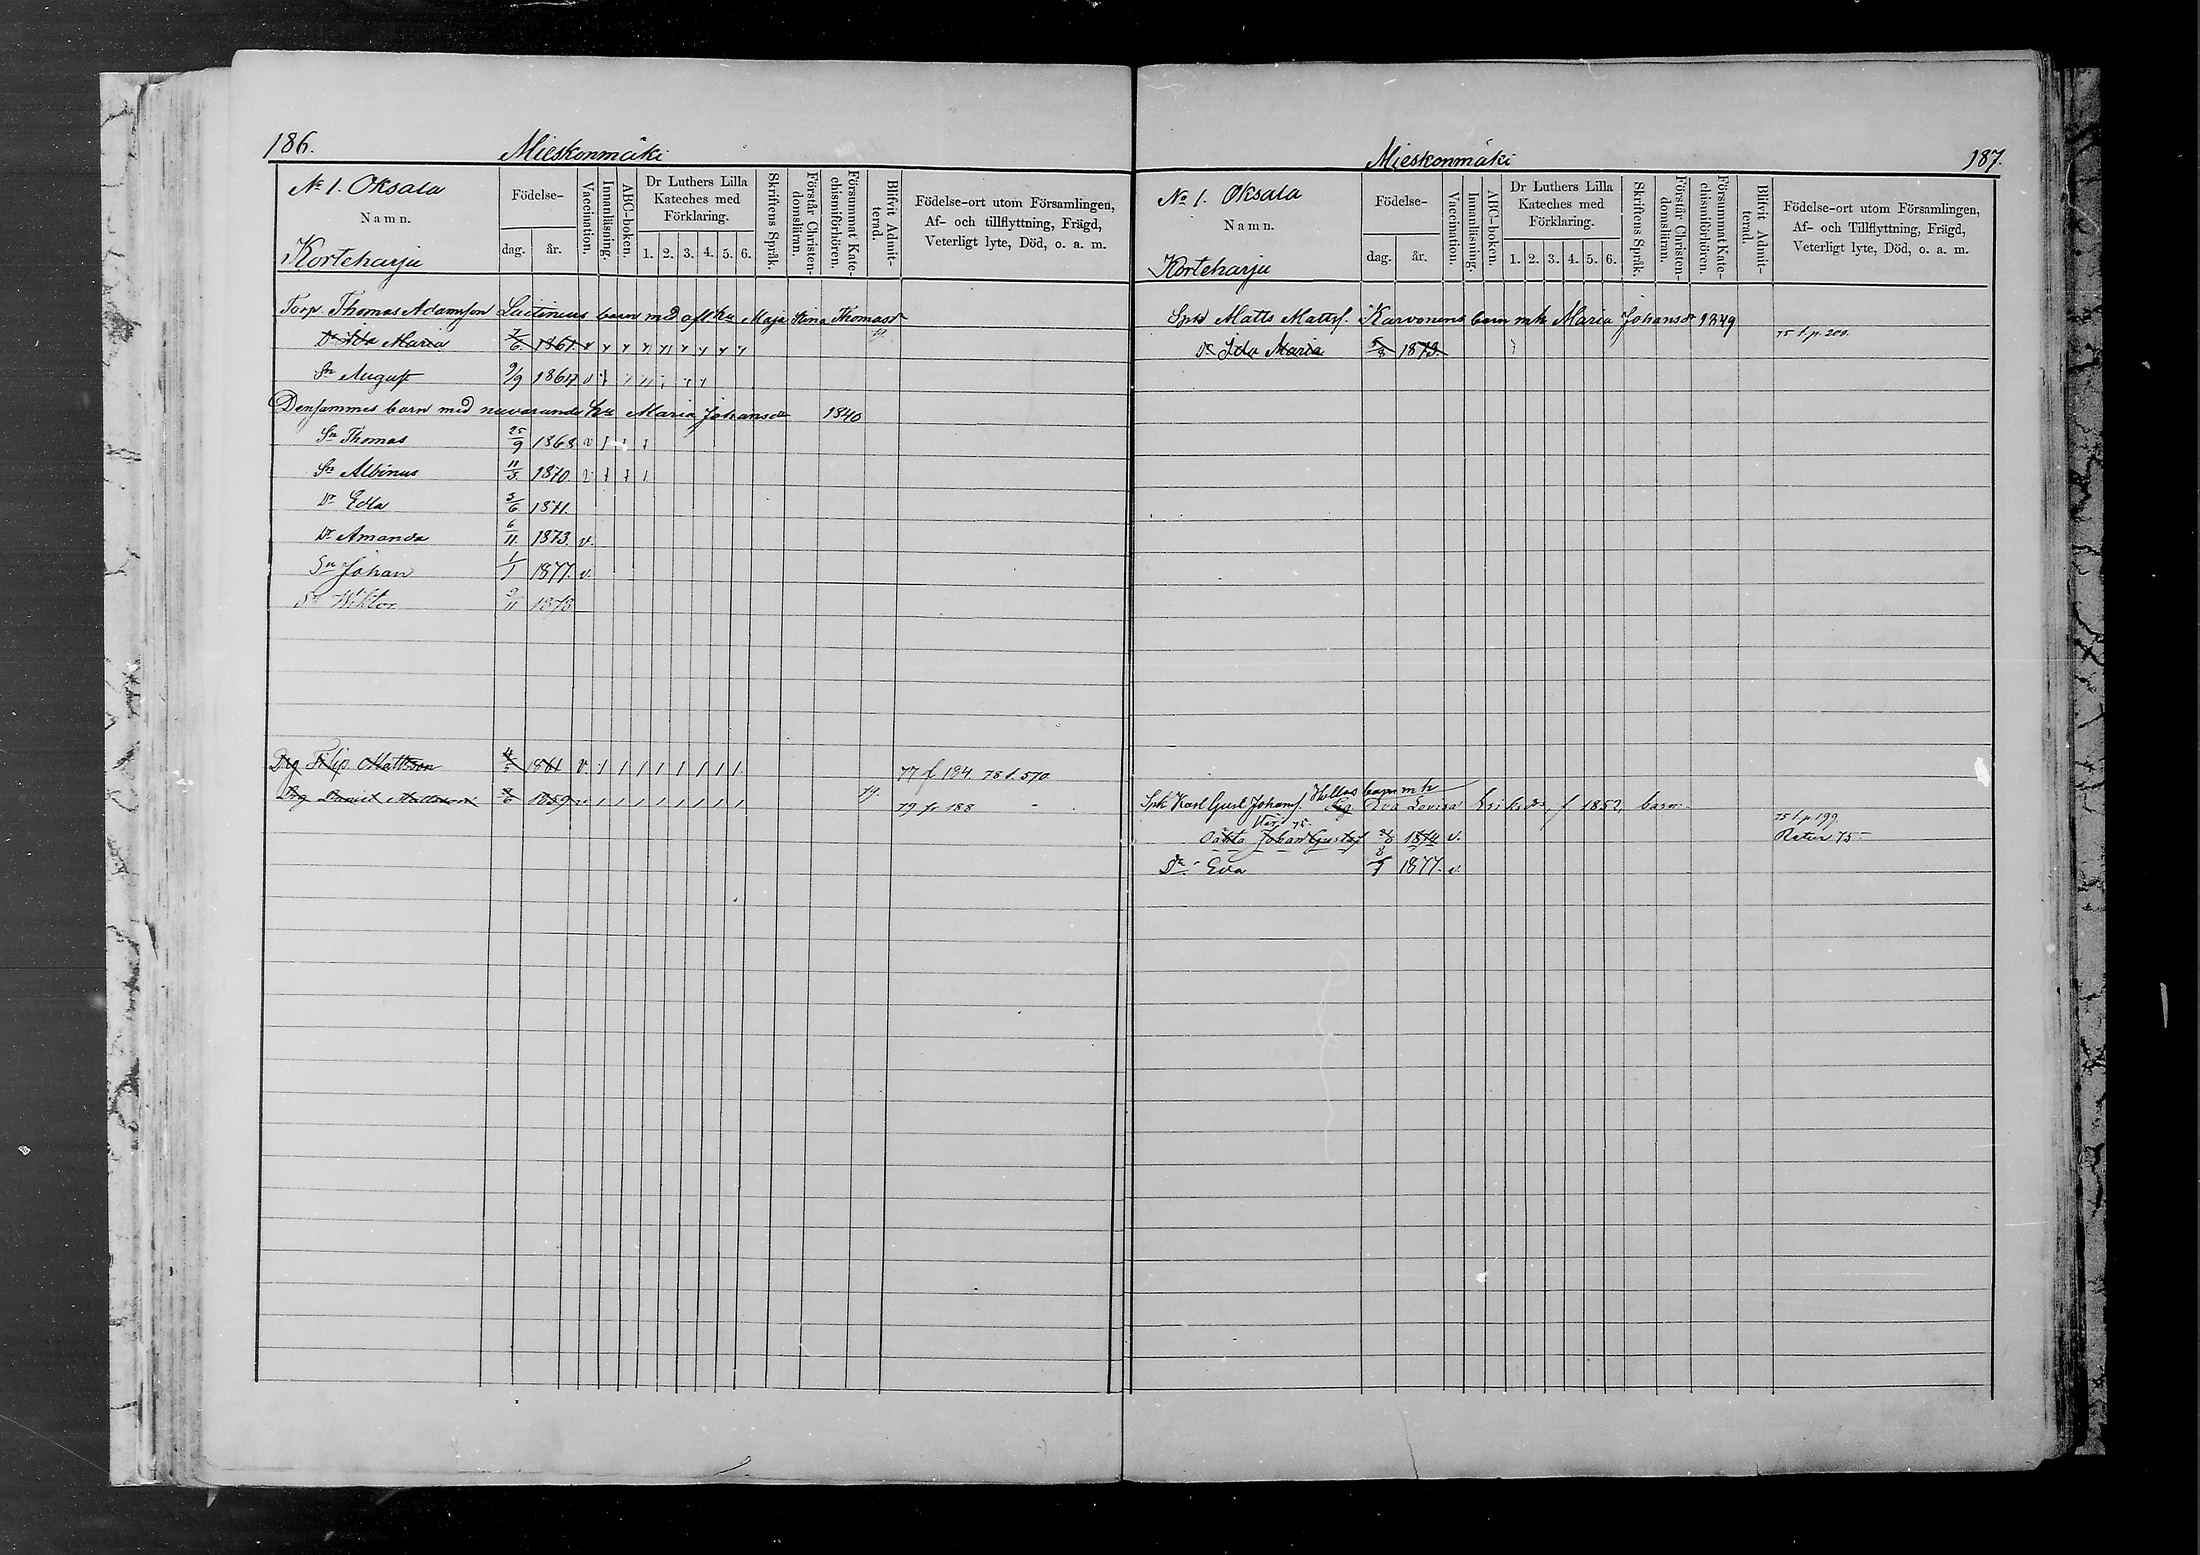 186.
Mieskonmäki
No 1. Oksala
Namn.
Korteharju
Födelse-
dag.
år.
Vaccination.
Innanläsning.
ABC-boken.
Dr Luthers Lilla
Kateches med
Förklaring.
1. 2. 3. 4. 5. 6.
Skriftens Språk.
Förstår Christen-
domsläran.
Försummat Kate-
chismiförhören.
Blifvit Admit-
terad.
Födelse-ort utom Församlingen,
Af- och tillflyttning, Frägd,
Veterligt lyte, Död, o. a. m.
Torp. Thomas Adamsson barn med afl. Hu Maja Stina Thomasdr
Dr Ida Maria 7/6 1861. v
Sn August 9/9 1864 v
Densammes barn med nuvarande Hu Maria Johansdr 1840
Sn Thomas 25/9 1868 v
Sn Albinus 11/3 1870 v
Dr Edla 5/6 1871.
Dr Amanda 6/11 1873. v.
Sn Johan 1/1 1877. v.
Sn Wiktor 9/11 1878
Drg Filip Mattsson 4/5 1861 v. 77 f 194. 78 f. 570
Drg Daniel Mattsson 1859 v 79. 79 fr 188
Mieskonmäki
187.
No 1. Oksala
Namn.
Korteharju
Födelse-
dag.
år.
Vaccination.
Innanläsning.
ABC-boken.
Dr Luthers Lilla
Kateches med
Förklaring.
1. 2. 3. 4. 5. 6.
Skriftens Språk.
Förstår Christen-
domsläran.
Försummat Kate-
chismiförhören.
Blifvit Admit-
terad.
Födelse-ort utom Församlingen,
Af- och Tillflyttning, Frägd,
Veterligt lyte, Död, o. a. m.
Matts Mattss. Karvonens barn mh Maria Johansdr 1849
Dr Ida Maria 5/8 1873. 75 f. p 200.
Hellas barn m h
Karl Gust Johanss. Eva Lovisa Eriksdr f 1852, barn
75 f p 199
Oäkta Johan Gustaf 1874 v. Retur 75
Dr Eva 1877. v.